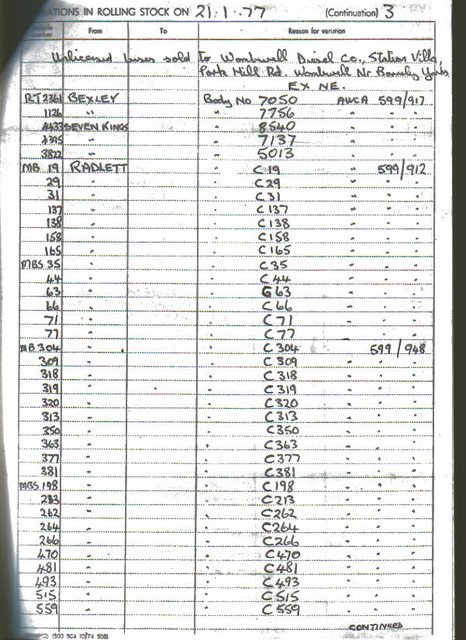 ATIONS IN ROLLING STOCK ON 21.1.77 (Continuation) 3
From To Reason for variation
Unlicensed buses sold to Wombwell Diesel Co., Station Villa,
Park Hill Rd. Wombwell Nr Barnsley Yorks.
EX NE.
RT2361 BEXLEY Body No 7050 AWCA 599/917
1126 " " 7756 " " "
4433 SEVEN KINGS " 8540 " " "
" " 7137 " " "
3822 " " 5013 " " "
MB 19 RADLETT " C19 " 599/912
29 " " C29 " " "
31 " " C31 " " "
137 " " C137 " " "
138 " " C138 " " "
158 " " C158 " " "
165 " " C165 " " "
MBS 35 " " C35 " " "
44 " " C44 " " "
63 " " C63 " " "
66 " " C66 " " "
71 " " C71 " " "
77 " " C77 " " "
MB 304 " " C304 " 599/948
309 " " C309 " " "
318 " " C318 " " "
319 " " C319 " " "
320 " " C320 " " "
313 " " C313 " " "
350 " " C350 " " "
363 " " C363 " " "
377 " " C377 " " "
381 " " C381 " " "
MBS 198 " " C198 " " "
213 " " C213 " " "
262 " " C262 " " "
264 " " C264 " " "
266 " " C266 " " "
470 " " C470 " " "
481 " " C481 " " "
493 " " C493 " " "
515 " " C515 " " "
559 " " C559 " " "
CONTINUED